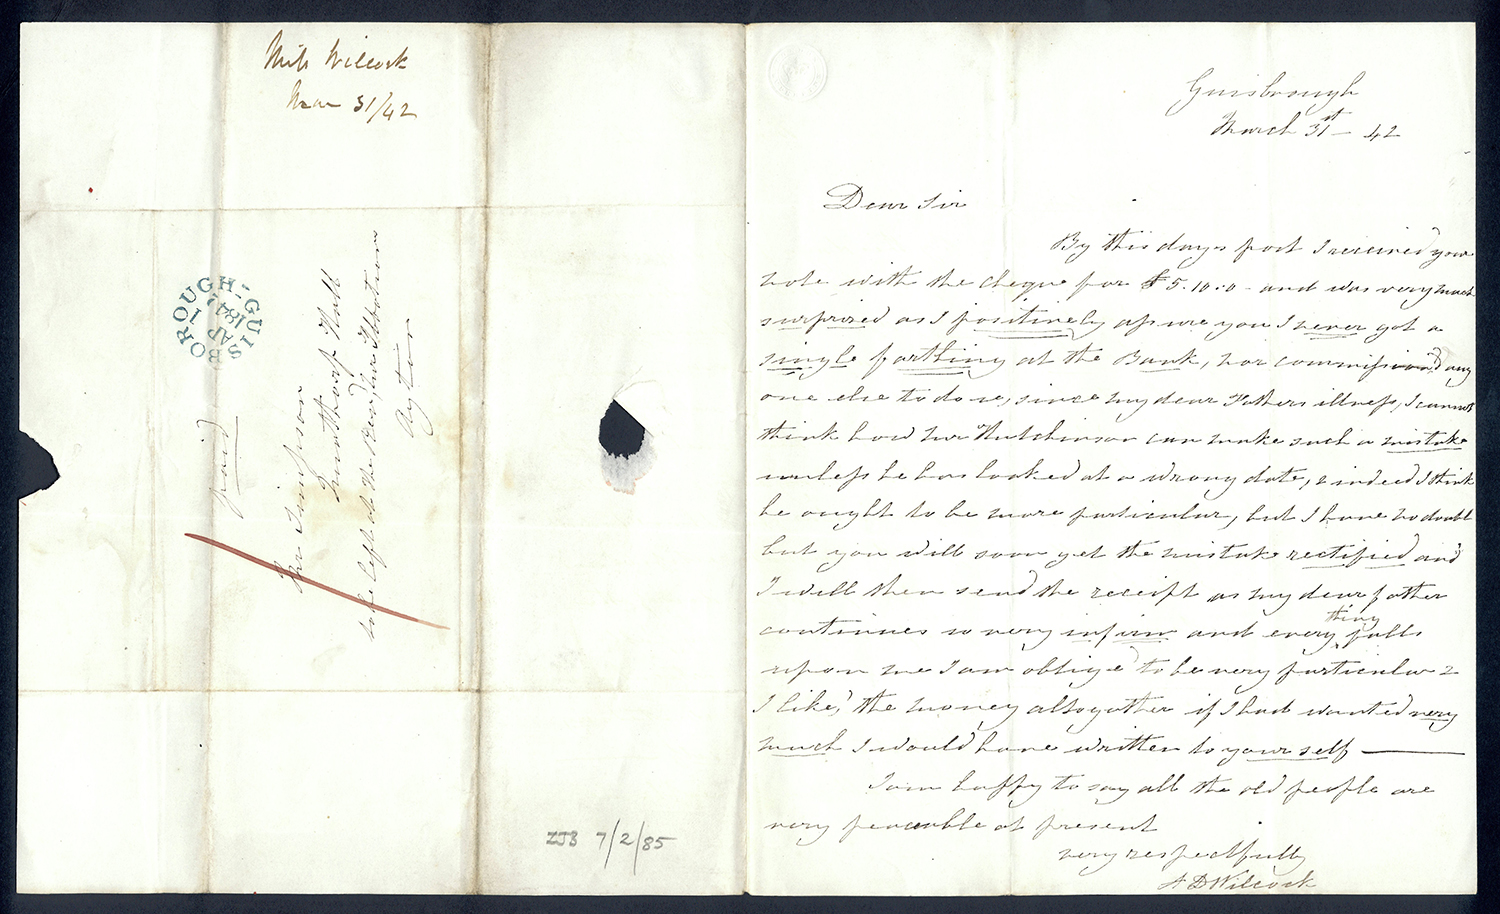 Miss Wilcock
Mar 31/42
GUISBOROUGH
AP 1
1842
paid
Mr Simpson
Nunthorp Hall
to be left at the
Ayton
ZJB 7/2/85
Guisbrough
March 31st - 42
Dear Sir
By this days post I received your
note with the cheque for £5.10.0 - and was very much
surprized as I positively assure you I never got a
single farthing at the Bank, nor commissioned any
one else to do so, since my dear Fathers illness, I cannot
think how Mr Hutchinson can make such a mistake
unless he has looked at a wrong date, & indeed I think
he ought to be more particular, but I have no doubt
but you will soon get the mistake rectified and
I will then send the receipt as my dear father
continues so very infirm and every thing falls
upon me I am oblige'd to be very particular &
I like'd the money altogather if I had wanted very
much I would have written to yourself
I am happy to say all the old people are
very peaceable at present
very respectfully
A D Wilcock